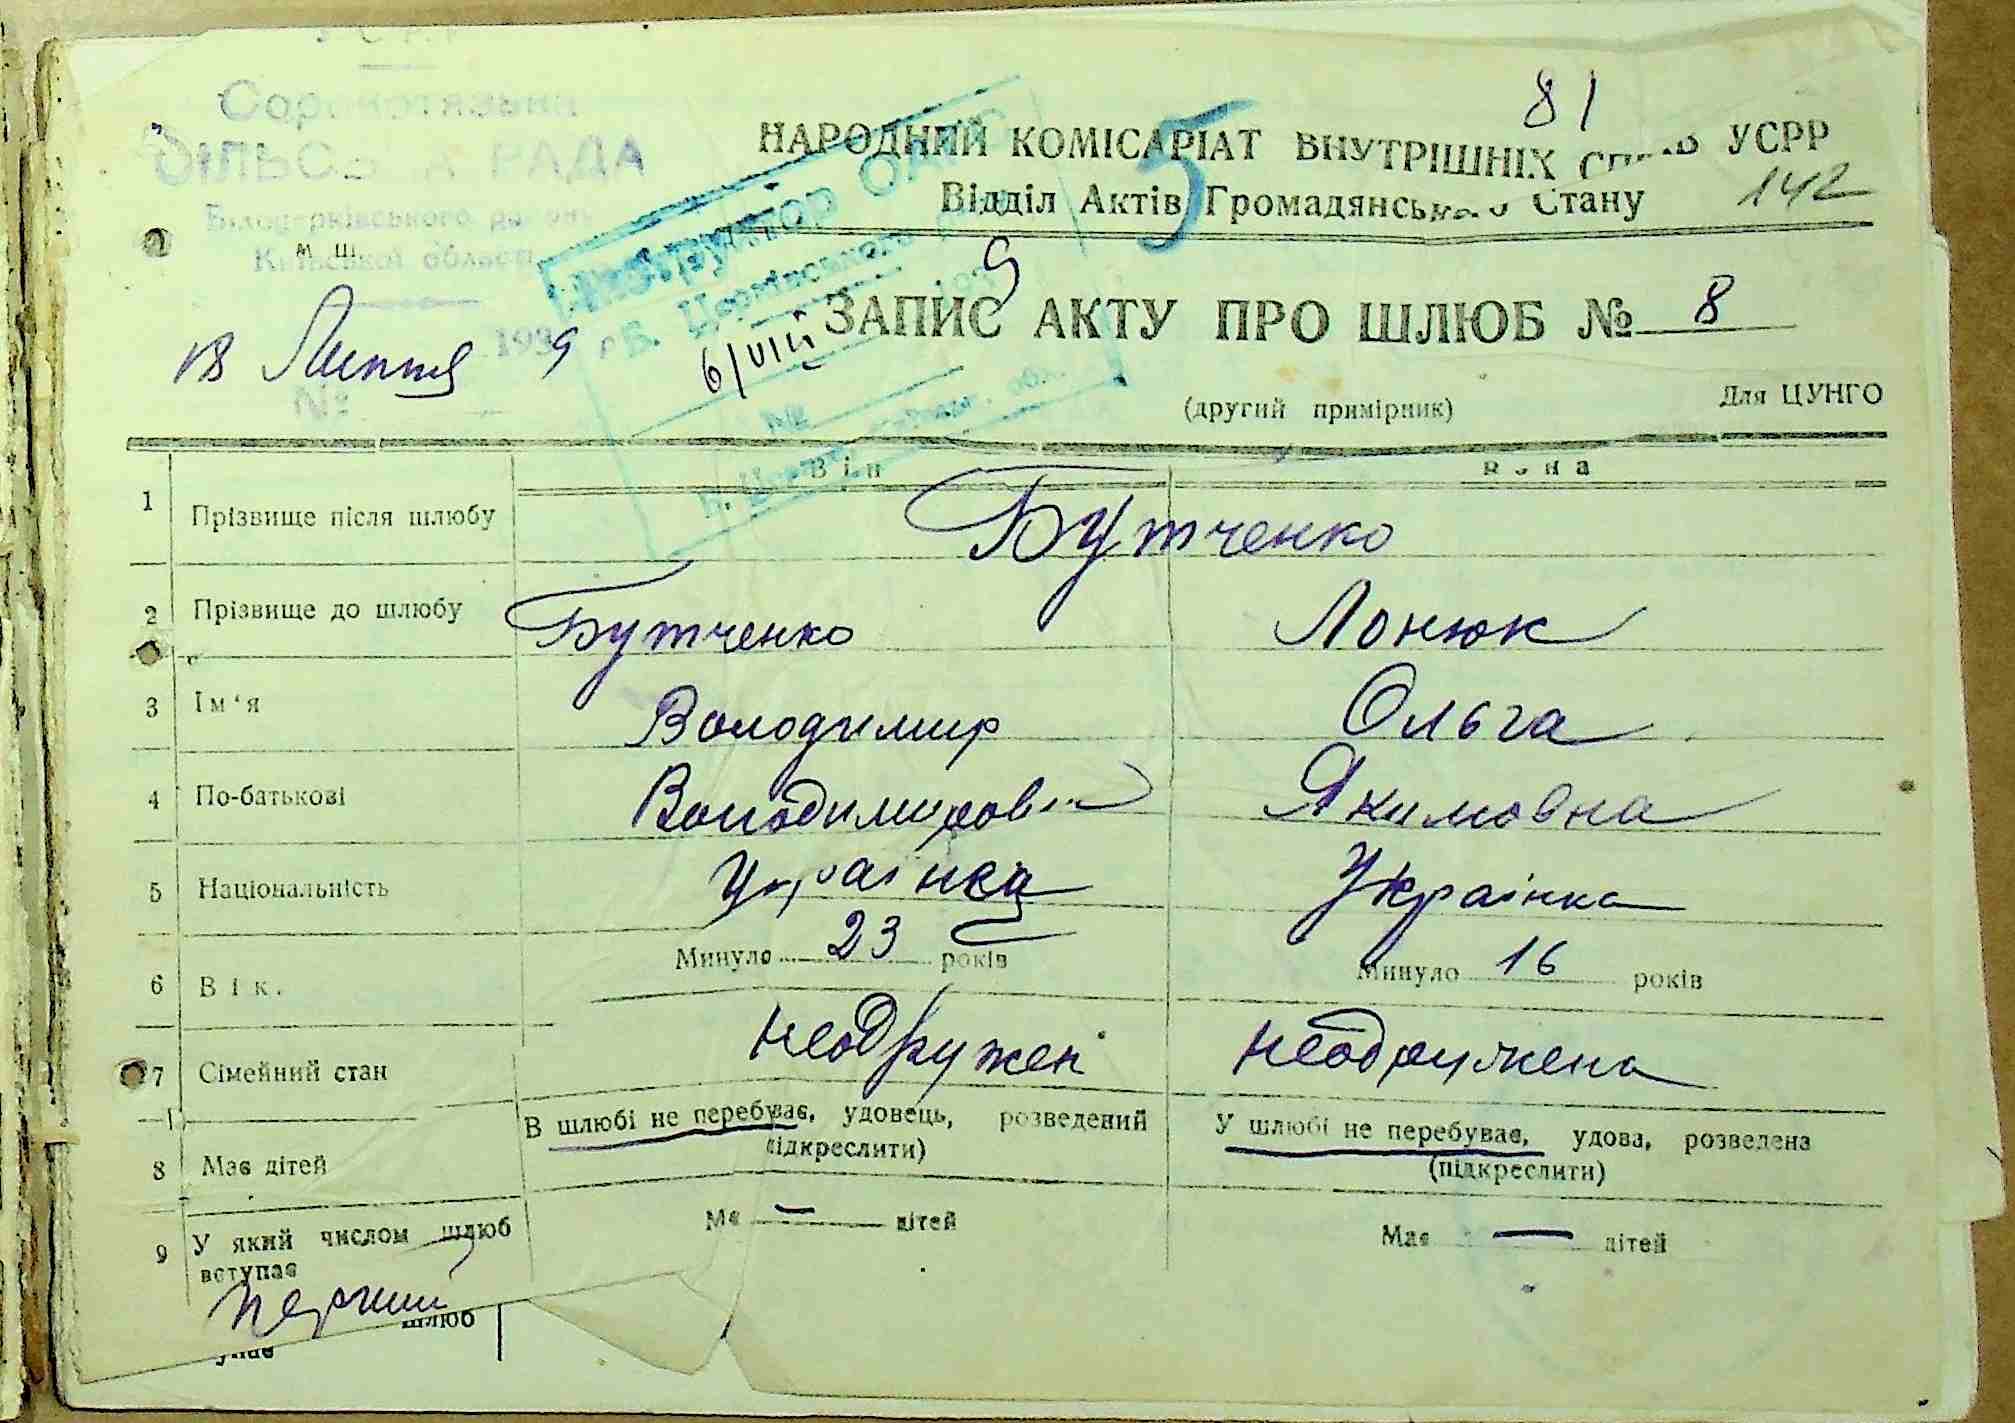 СІЛЬСЬКА РАДА
Білоцерківського району
Київської області
81
НАРОДНИЙ КОМІСАРІАТ ВНУТРІШНІХ СПРАВ УСРР
Відділ Актів Громадянського Стану
142
5
м. ш.
18 Липня 1939
6/VIII
9
ЗАПИС АКТУ ПРО ШЛЮБ № 8
(другий примірник)
Для ЦУНГО
Він Вона
1 Прізвище після шлюбу Бутченко
2 Прізвище до шлюбу Бутченко Лонюк
3 Ім'я Володимир Ольга
4 По-батькові Володимирович Якимовна
5 Національність Українец Українка
6 Вік. Минуло 23 років Минуло 16 років
7 Сімейний стан неодружен неодружена
В шлюбі не перебуває, удовець, розведений У шлюбі не перебуває, удова, розведена
(підкреслити) (підкреслити)
8 Має дітей Має — дітей Має — дітей
9 У який числом шлюб
вступає
перший
шлюб